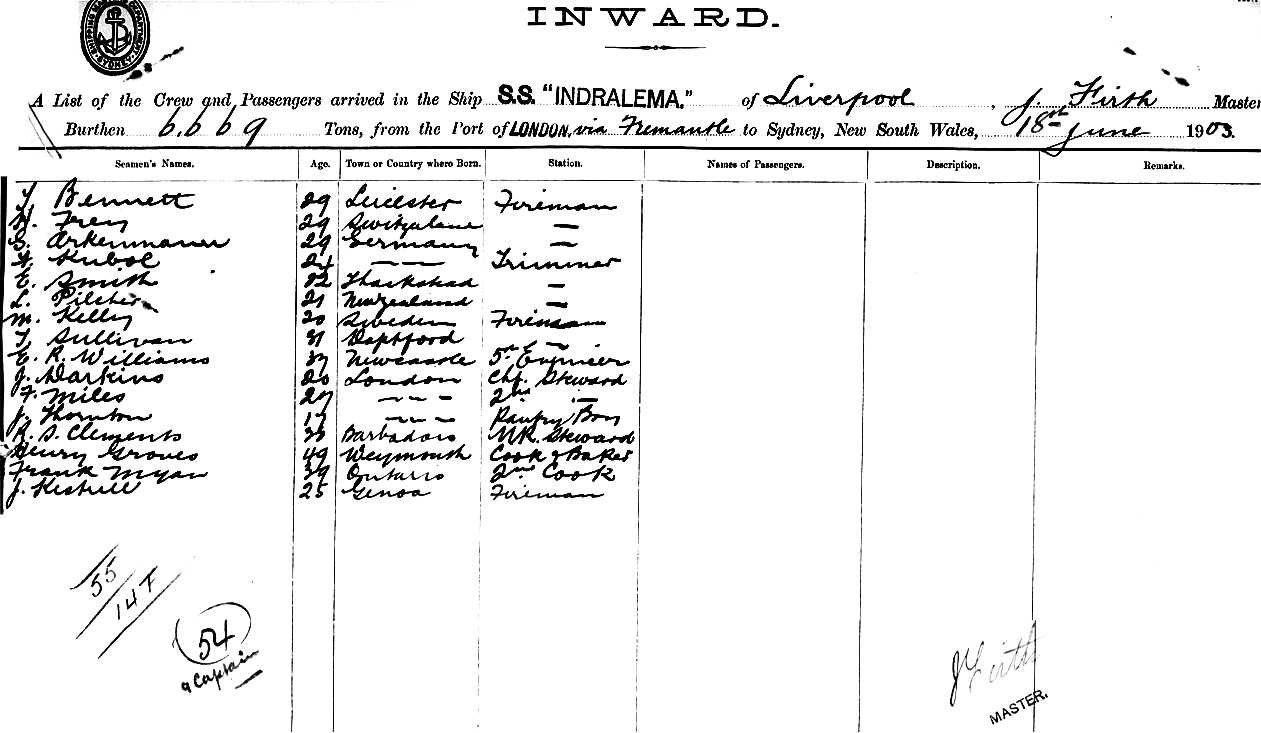 SHIPPING MASTER'S DEPARTMENT SYDNEY
INWARD.
A List of the Crew and Passengers arrived in the Ship S.S. "INDRALEMA." of Liverpool, J. Firth Master
Burthen 6,669 Tons, from the Port of LONDON, via Fremantle to Sydney, New South Wales, 18th June 1903.
Seamen's Names. Age. Town or Country where Born. Station. Names of Passengers. Description. Remarks.
T. Bennett 29 Leicester Fireman
H. Frey 29 Switzalane —
S. 29 Germany —
Kubol 24 — — Trimmer
E. Smith 32 Thackstead —
L. Pilcher 21 New Zealand —
M. Kelly 20 Sweden Fireman
T. Sullivan 31 Deptford —
E. R. Williams 37 Newcastle 5th Engineer
J. Darkins 26 London Chf. Steward
F. Miles 27 — — — 2nd —
J. Thornton 17 — — — Pantry Boy
R. S. Clements 33 Barbados M.R. Steward
Henry Groves 49 Weymouth Cook & Baker
Frank Myan 39 Ontario 2nd Cook
J. 25 Genoa Fireman
55
147
54
& Captain
J Firth
MASTER.